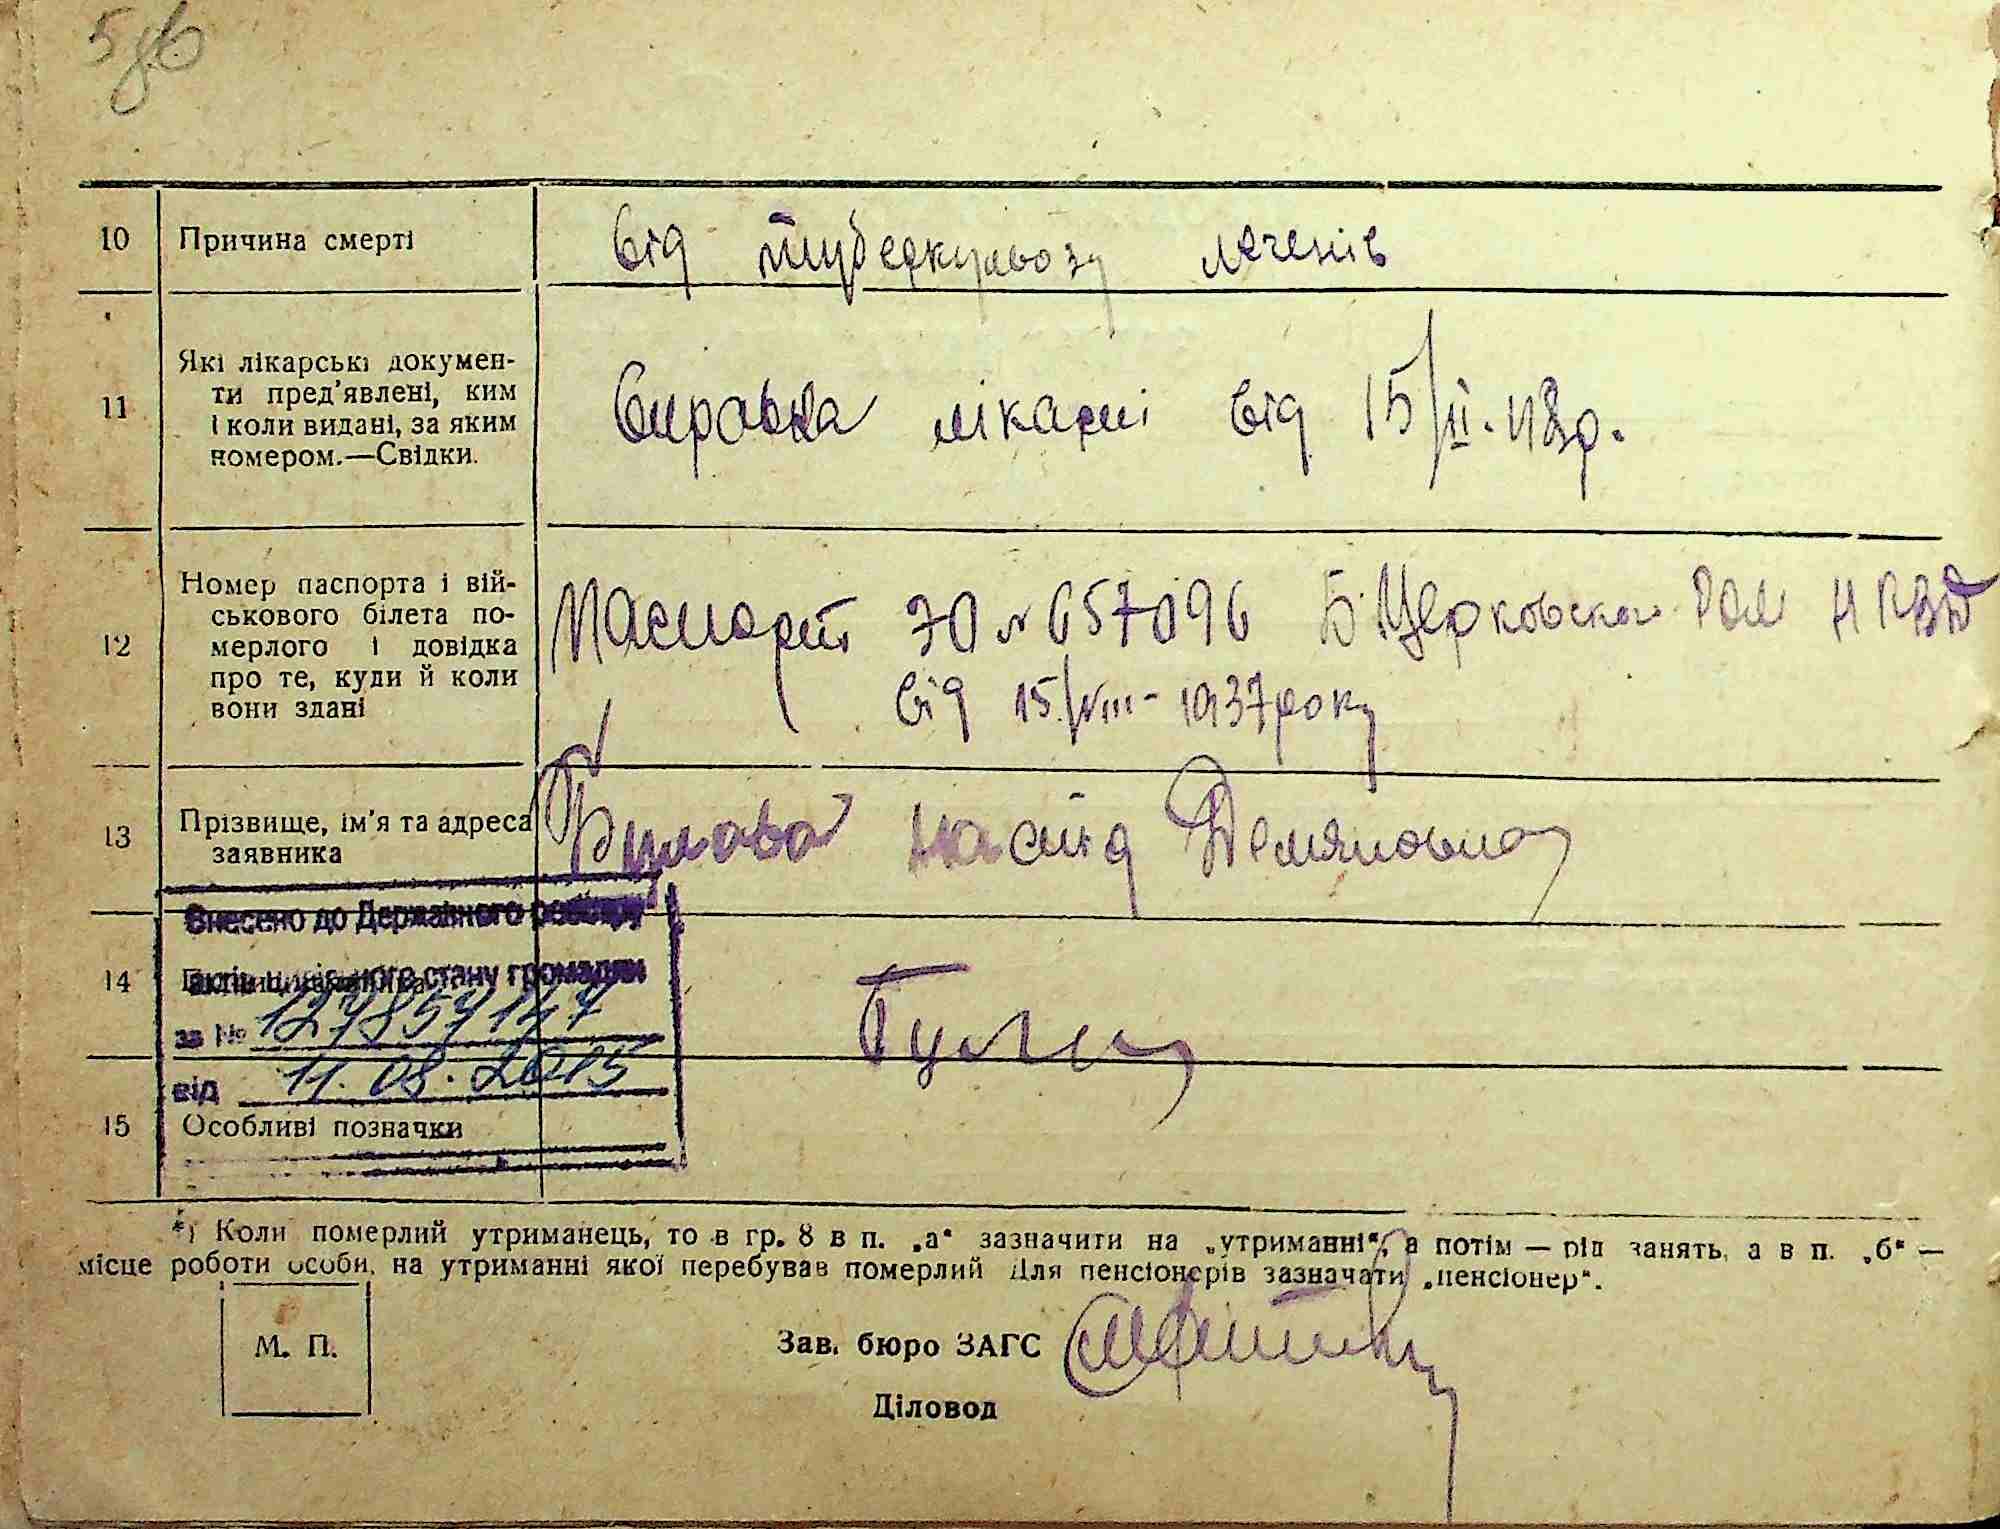 10 Причина смерті від туберкульозу леченів
11 Які лікарські докумен-
ти пред'явлені, ким
і коли видані, за яким
номером.—Свідки.
Справка лікарні від 15/II.
12 Номер паспорта і вій-
ськового білета по-
мерлого і довідка
про те, куди й коли
вони здані
Паспорт № 657096 Б. Церковской НКВД
від 15/VIII- 1937 року
13 Прізвище, ім'я та адреса
заявника
Демяновна
Внесено до Державного реєстру
14
актів цивільного стану громадян
за № 127859147
від 11.08.2015
15 Особливі позначки
*) Коли померлий утриманець, то в гр. 8 в п. „а" зазначити на „утриманні", а потім — рід занять, а в п. „б" —
місце роботи особи, на утриманні якої перебував померлий Для пенсіонерів зазначати „пенсіонер".
М. П.
Зав. бюро ЗАГС
Діловод